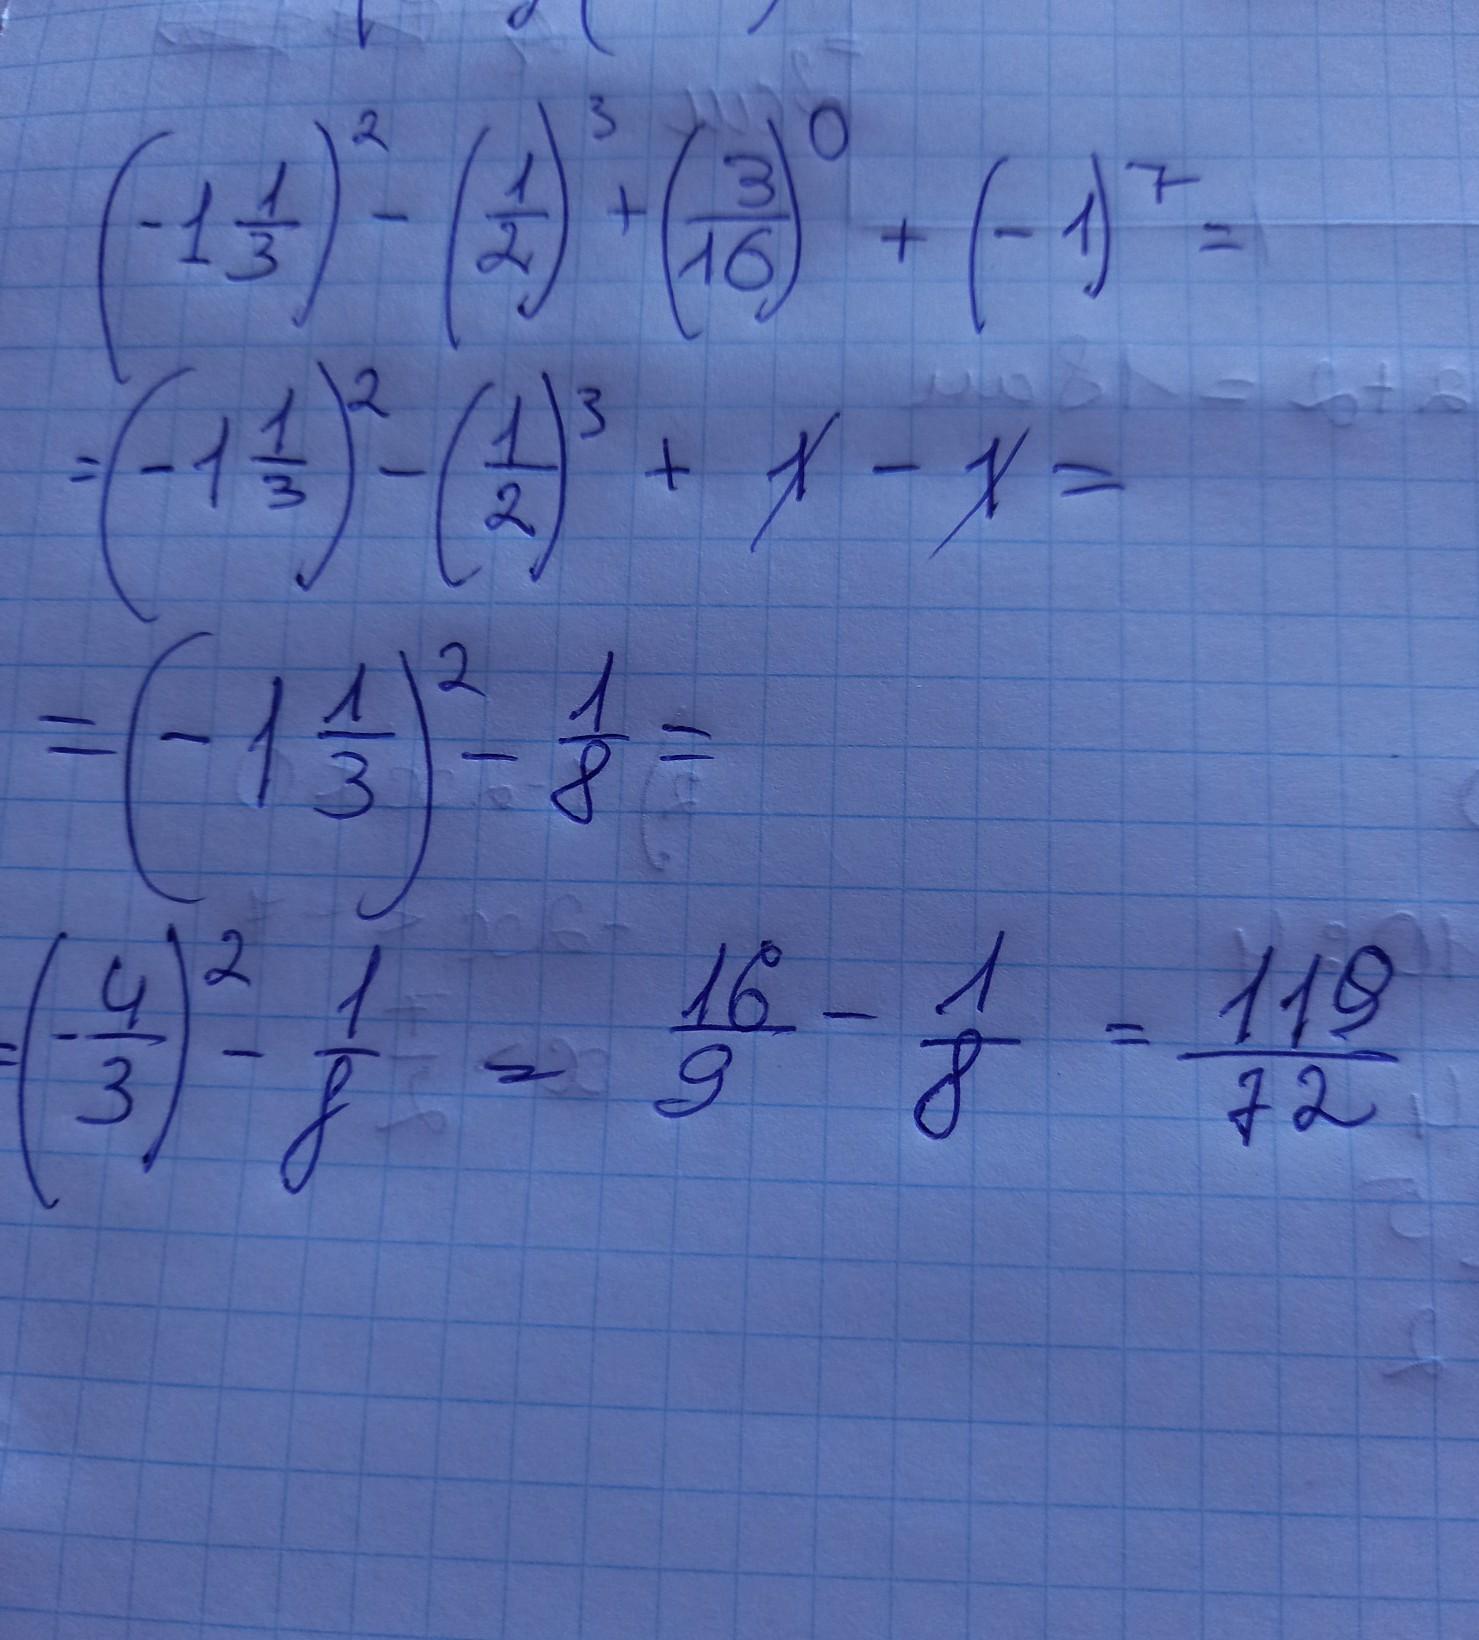 (-1 1/3)² - (1/2)³ + (3/16)⁰ + (-1)⁷ =
= (-1 1/3)² - (1/2)³ + 1 - 1 =
= (-1 1/3)² - 1/8 =
= (-4/3)² - 1/8 = 16/9 - 1/8 = 119/72